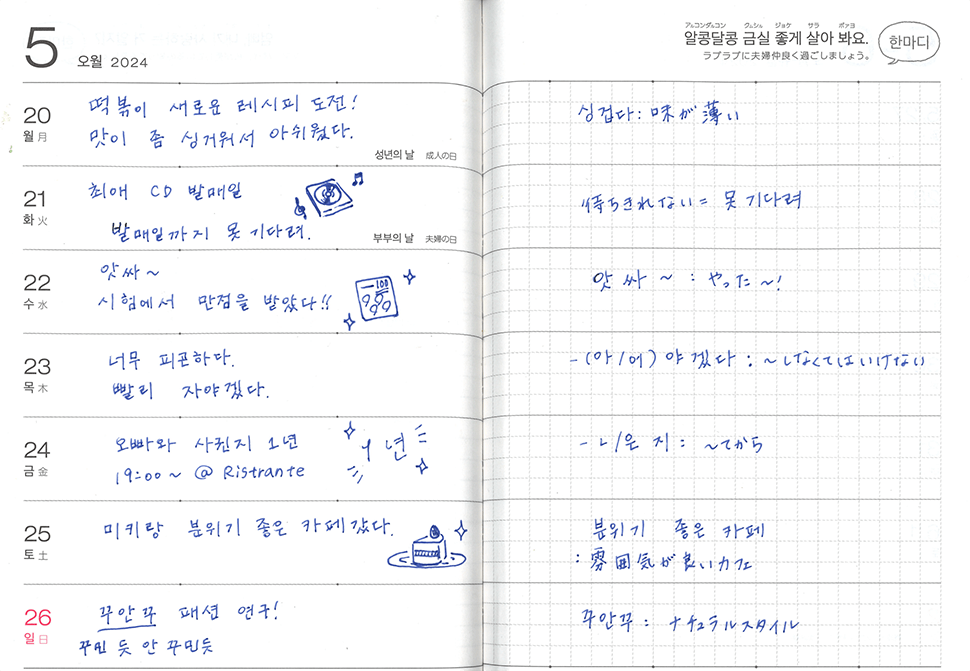 5 오월 2024
アルコンダルコン クムシル ジョケ サラ ボァヨ
알콩달콩 금실 좋게 살아 봐요.
ラブラブに夫婦仲良く過ごしましょう。
한마디
20
월 月
떡볶이 새로운 레시피 도전!
맛이 좀 싱거워서 아쉬웠다.
성년의 날 成人の日
싱겁다: 味が薄い
21
화 火
최애 CD 발매일
발매일까지 못 기다려.
부부의 날 夫婦の日
待ちきれない = 못 기다려
22
수 水
앗싸~
시험에서 만점을 받았다!!
100
앗싸~ : やった~!
23
목 木
너무 피곤하다.
빨리 자야겠다.
-(아/어)야겠다 : ~しなくてはいけない
24
금 金
오빠와 사귄지 1년
19:00~ @ Ristrante
1년
-ㄴ/은 지 : ~てから
25
토 土
미키랑 분위기 좋은 카페 갔다.
분위기 좋은 카페
: 雰囲気が良いカフェ
26
일 日
꾸안꾸 패션 연구!
꾸민 듯 안 꾸민듯
꾸안꾸 : ナチュラルスタイル